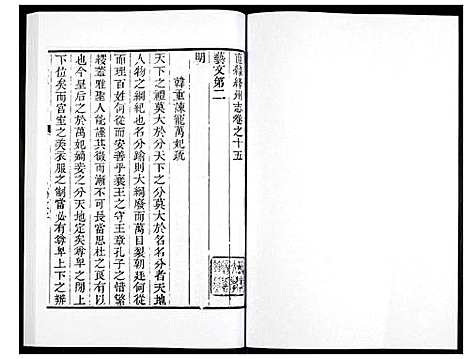 直隸絳州志卷之十五
藝文第二
明
韓重諫寵萬妃疏
天下之禮莫大於分天下之分莫大於名分者天地
人物之綱紀也名分踰則大綱廢而目裂朝廷何從
而理百姓何從而安善乎襄王之守王章孔子之惜繁
纓蓋雅聖人能謹其微而漸不可長當思杜之良有以
也今皇后之於萬妃嫡妾之分天地定矣尊卑上
下位矣而宮室之美衣服之制當必有尊卑上下之辨